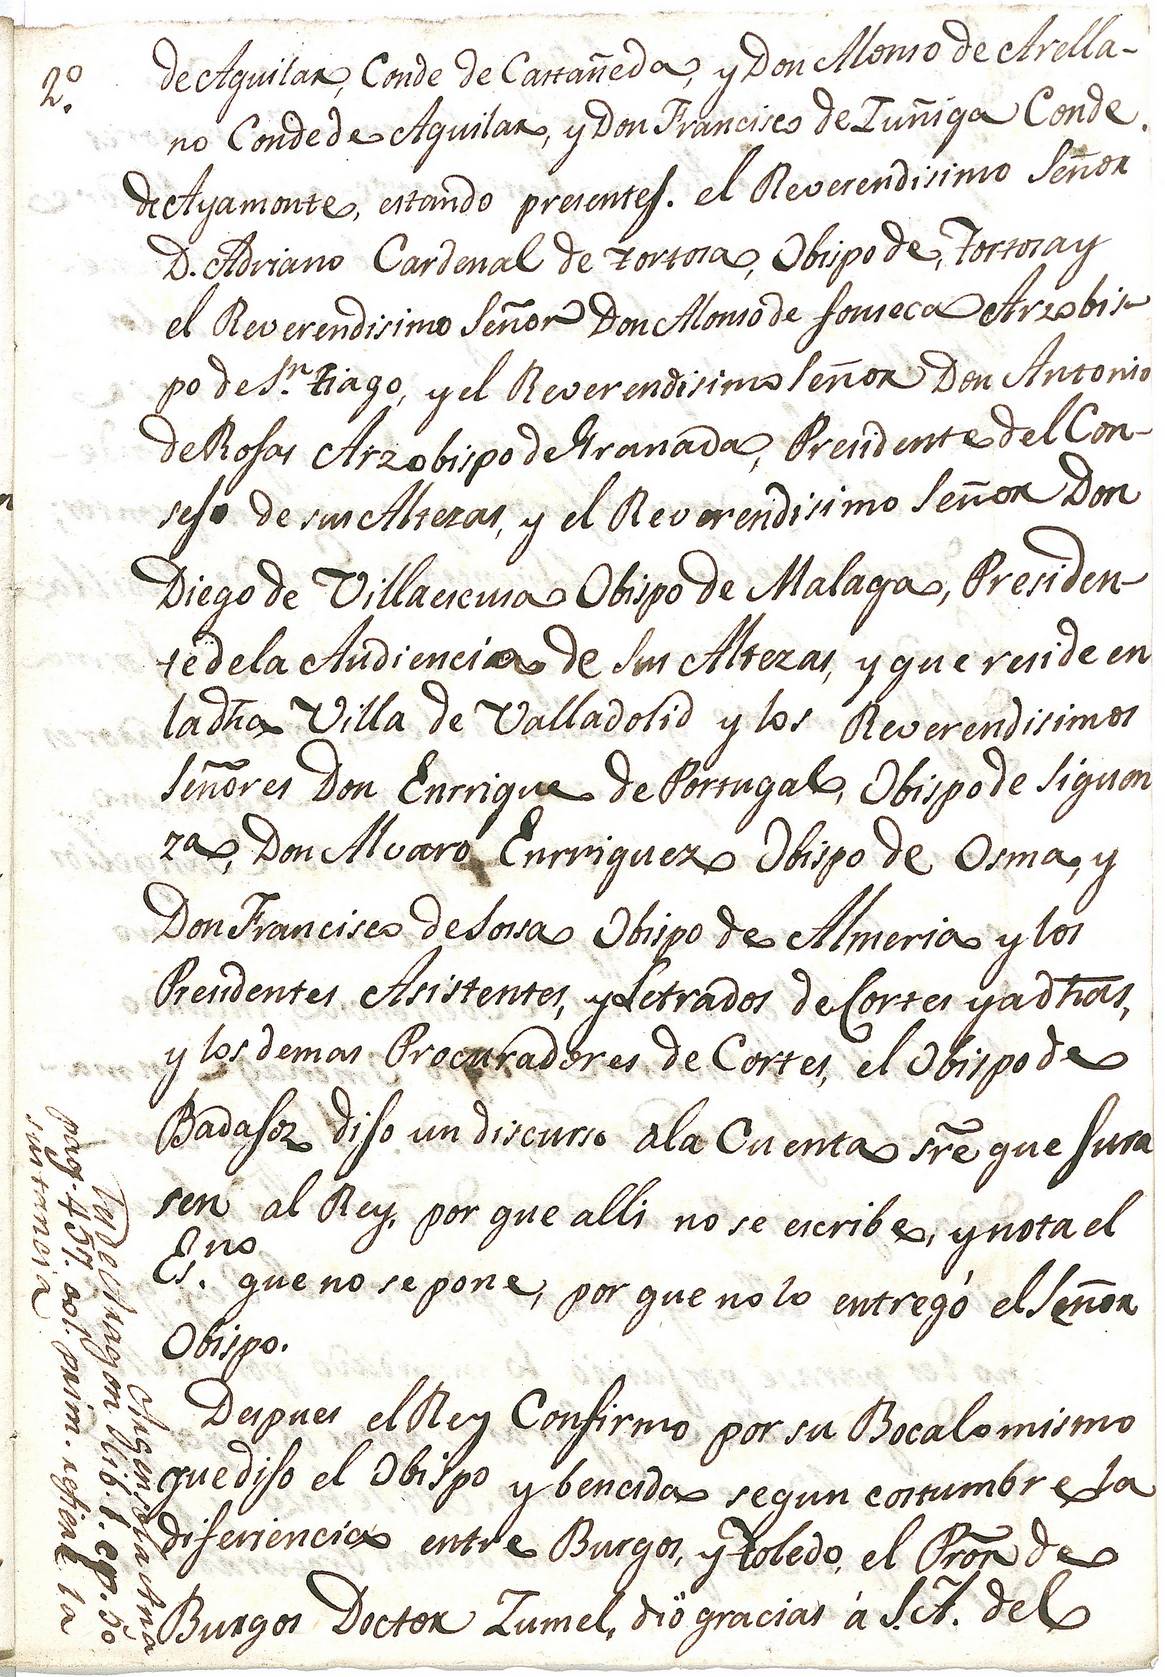 2º.
de Aguilar, Conde de Castañeda, y Don Alonso de Arella-
no Conde de Aguilar, y Don Francisco de Zuñiga Conde.
de Ayamonte, estando presentes. el Reverendisimo Señor
D. Adriano Cardenal de tortosa, Obispo de, Tortosa y
el Reverendisimo Señor Don Alonso de fonseca Arzobis-
po de Sn. tiago, y el Reverendisimo Señor Don Antonio
de Rosas Arzobispo de Granada, Presidente del Con-
sejo de sus Altezas, y el Reverendisimo Señor Don
Diego de Villaescusa Obispo de Malaga, Presiden-
te de la Audiencia de sus Altezas, y que reside en
la dha Villa de Valladolid y los Reverendisimos
Señores Don Enrrique de Portugal, Obispo de Siguen
za, Don Alvaro Enrriquez Obispo de Osma, y
Don Francisco de Sossa Obispo de Almeria y los
Presidentes Asistentes, y Letrados de Cortes ya dhas,
y los demas Procuradores de Cortes, el Obispo de
Badajoz dijo un discurso a la Cuenta sre que Jura
sen al Rey, por que alli no se escribe, y nota el
Esno. que no se pone, por que no lo entregó el Señor
Obispo.
Despues el Rey Confirmo por su Boca lo mismo
que dijo el Obispo y bencida segun costumbre la
diferiencia entre Burgos, y Toledo, el Pror de
Burgos Doctor Zumel, dió gracias á S.A. del
Argensola Ana
de Aragon lib. 1. cp. 50
pag. 457. col. prim. refiere la
sustancia